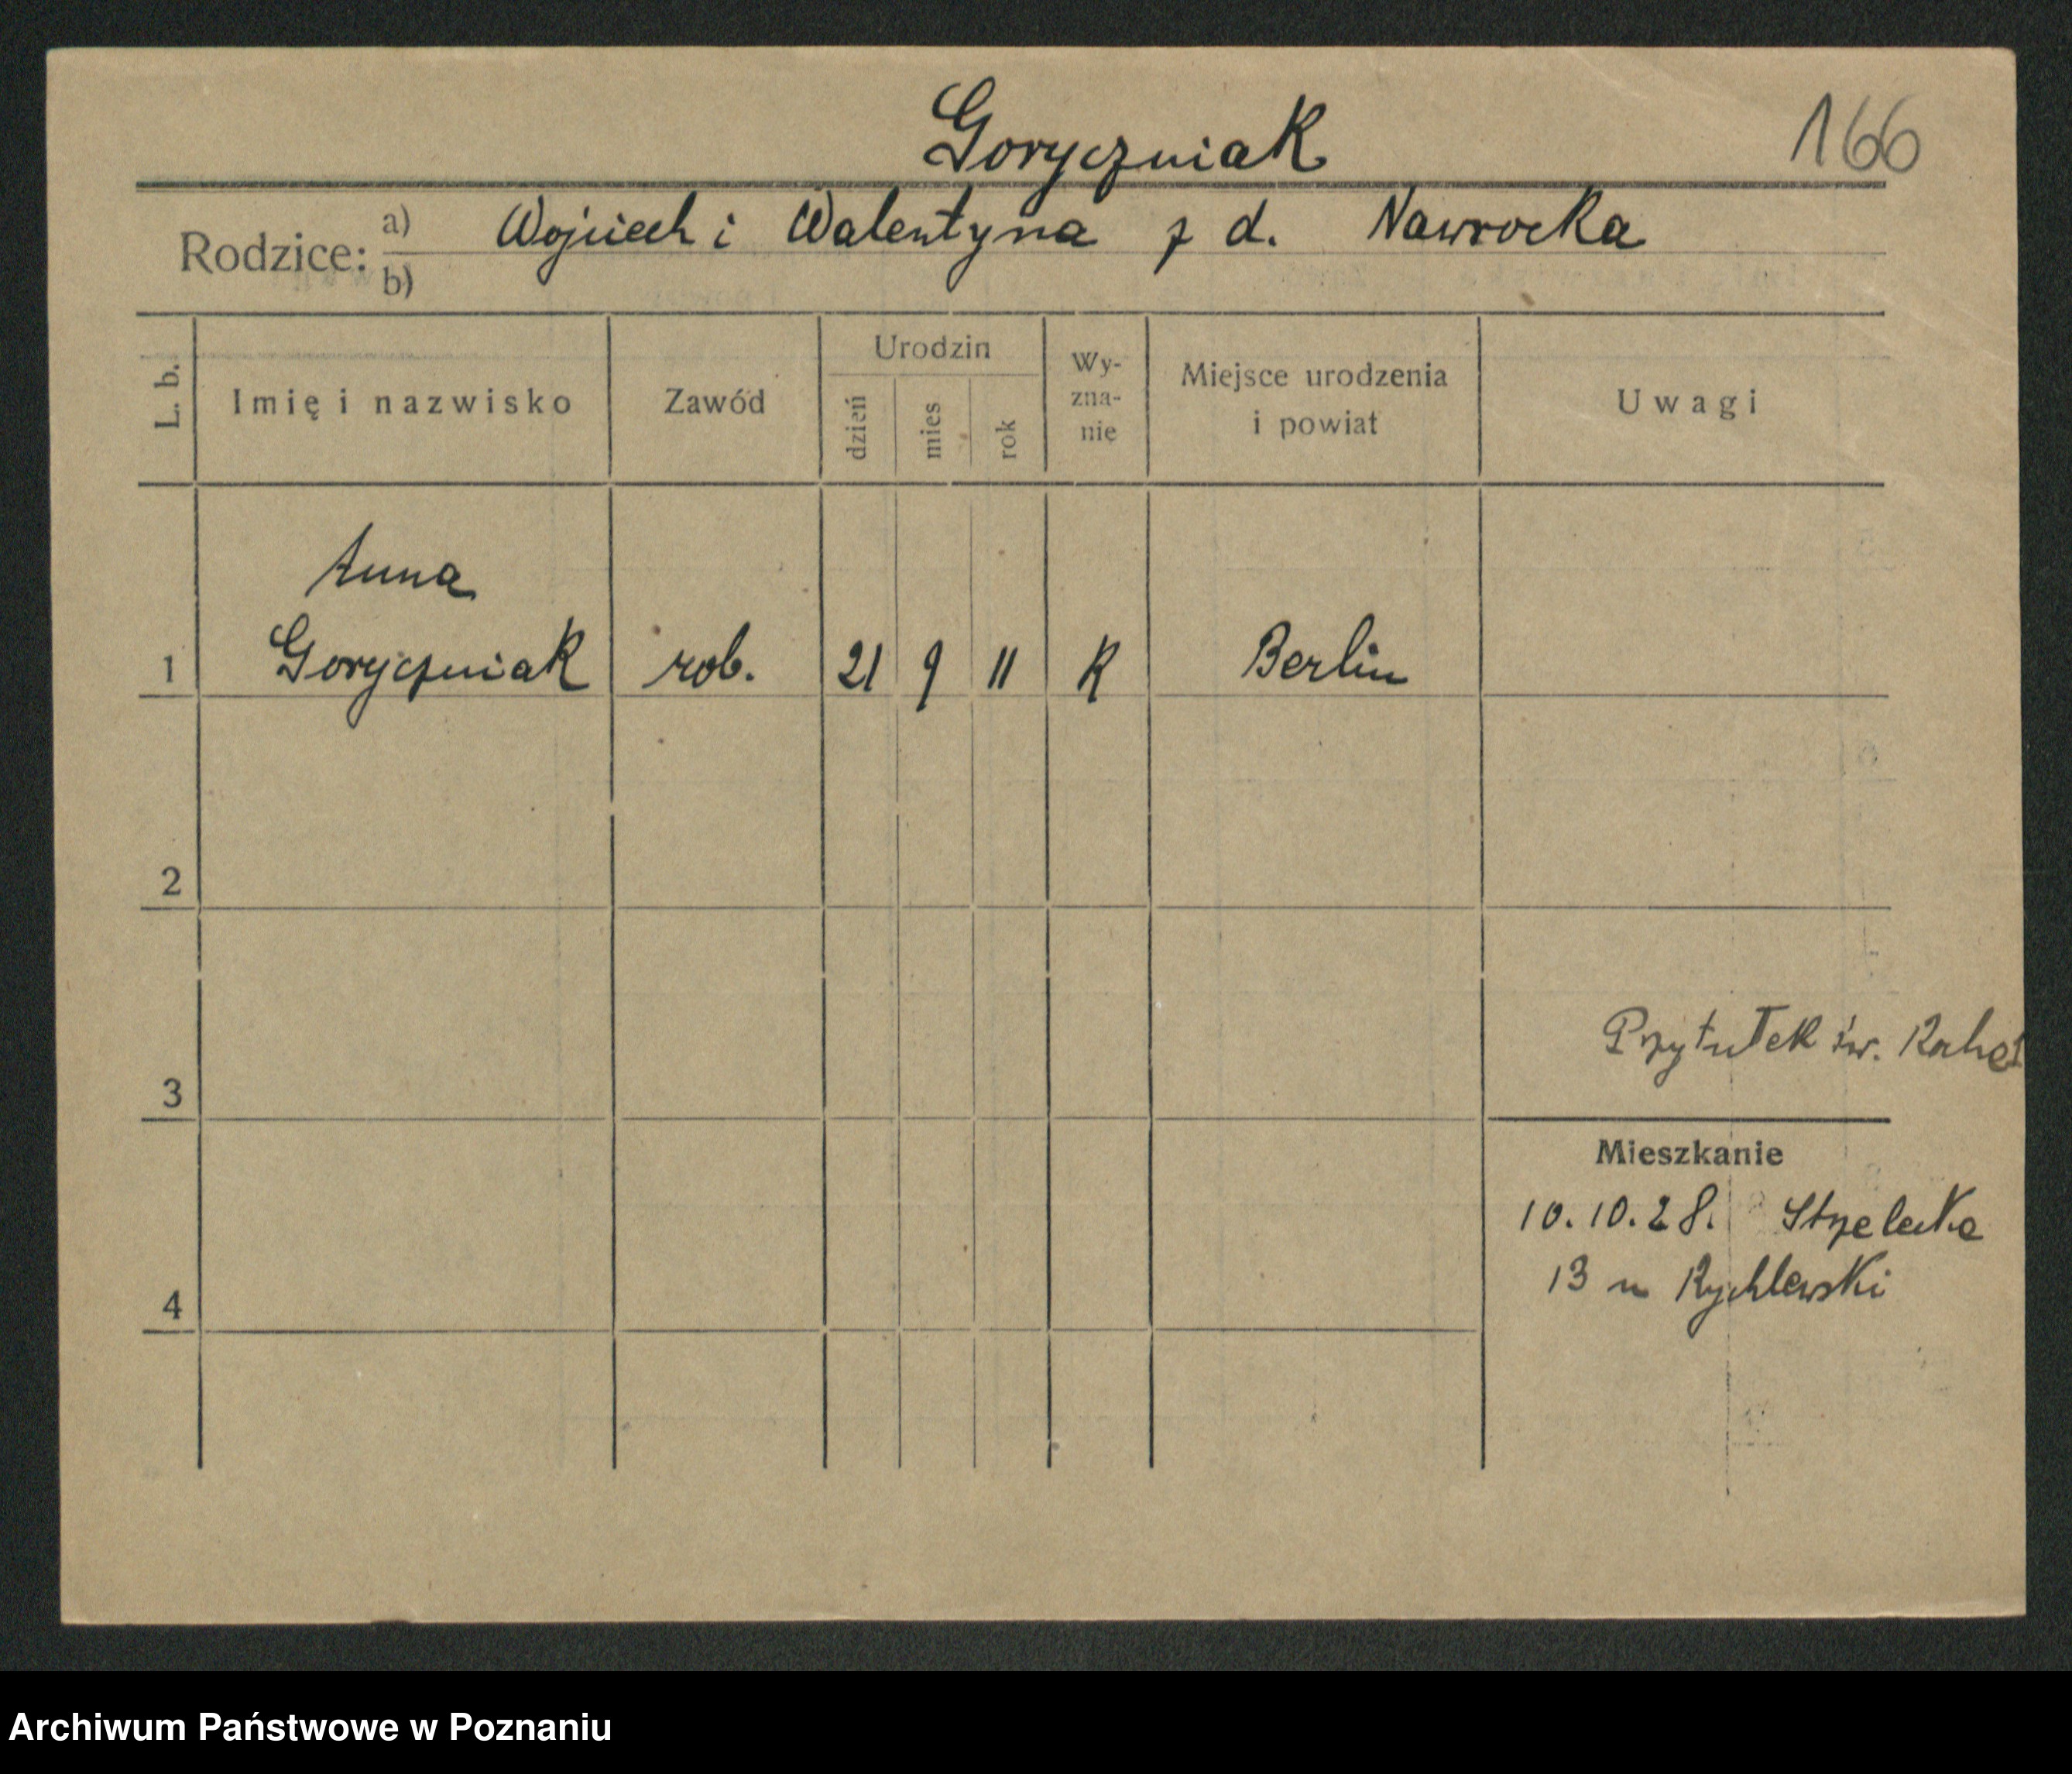 Goryczniak 166
Rodzice: a) Wojciech i Walentyna z d. Nawrocka
b)
L. b. Imię i nazwisko Zawód Urodzin dzień mies rok Wy-zna-nie Miejsce urodzenia i powiat Uwagi
Anna
1 Goryczniak rob. 21 9 11 K Berlin
2
Przytułek św.
3
Mieszkanie
10.10.28. Strzelecka
13 u Rychlewski
4
Archiwum Państwowe w Poznaniu